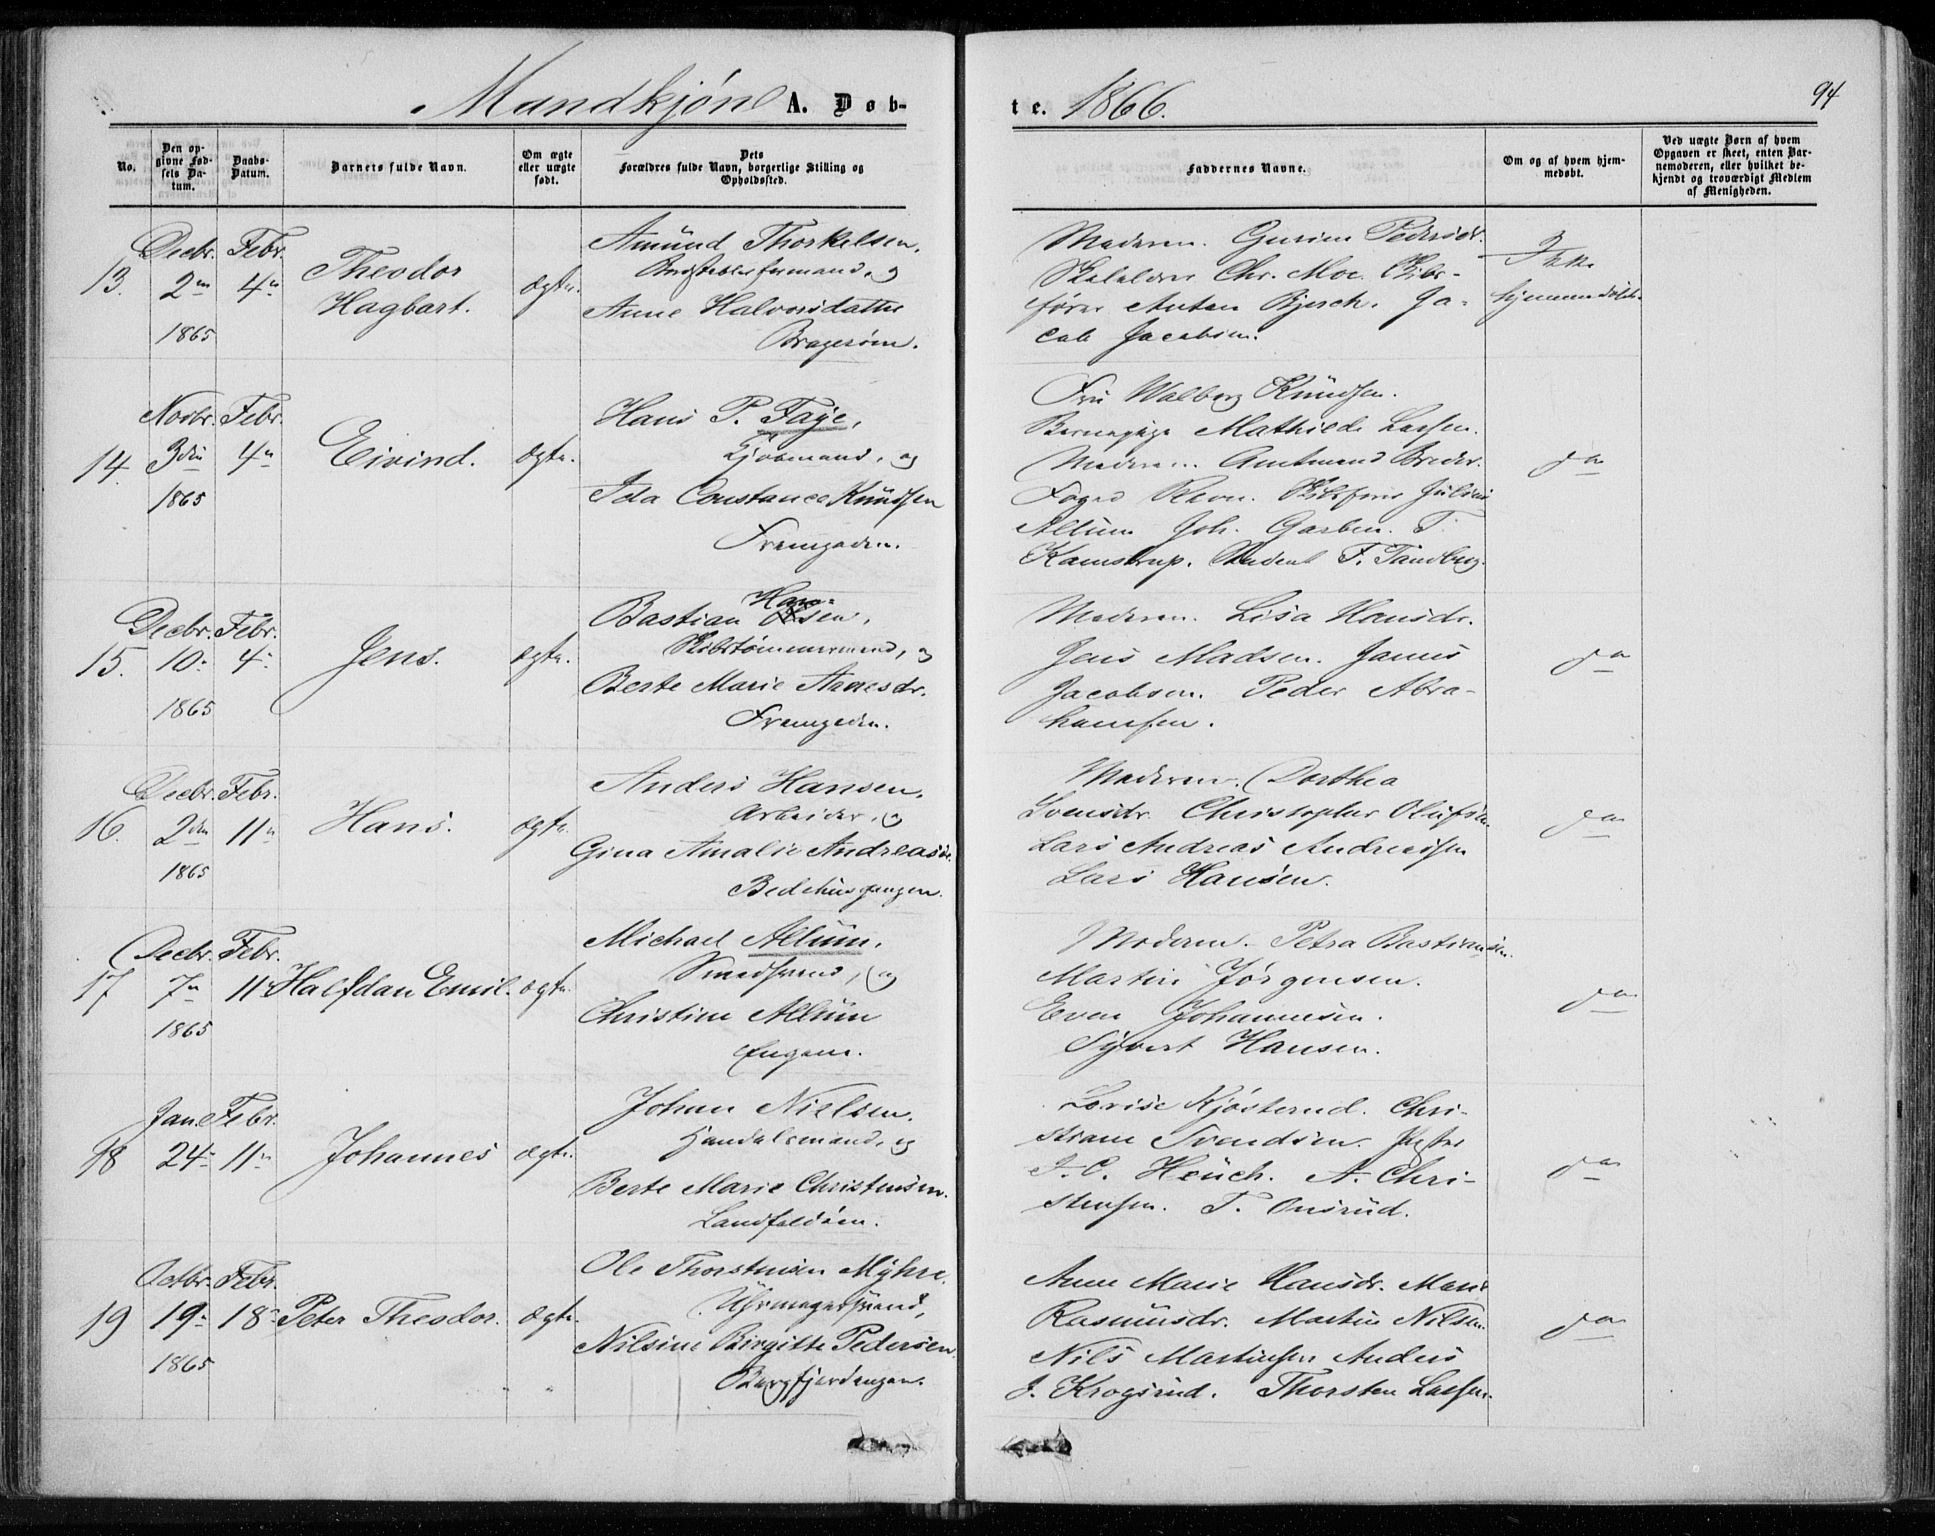 Mandkjøn A. Døb-
te. 1866.
94
No.
Den op-
givne Fød-
sels Da-
tum.
Daabs-
Datum.
Barnets fulde Navn.
Om ægte
eller uægte
født.
Dets
Forældres fulde Navn, borgerlige Stilling og
Opholdssted.
Faddernes Navne.
Om og af hvem hjem-
medøbt.
Ved uægte Børn af hvem
Opgaven er skeet, enten Bar-
nemoderen, eller hvilket be-
kjendt og troværdigt Medlem
af Menigheden.
13. Decbr. 2den 1865 Febr. 4de
Theodor
Hagbart.
ægte.
Amund Thorkelsen,
og
Anne Halvorsdatter
Bragerøen.
Moderen. Gurine Pedersdr.
Chr. Moe. Skibs-
fører Anton Bjerch. Ja-
cob Jacobsen.
Ikke
hjemmedøbt.
14. Novbr. 3die 1865 Febr. 4de
Eivind.
ægte.
Hans P. Faye,
Kjøbmand, og
Ida Constance Knudsen
Fremgaden.
Fru Walborg Knudsen.
Mathilde Lassen.
Moderen. Amtmand Breder.
Foged Skibsfører Julius
Allum Joh. Garben. T.
Kamstrup. Student F. Tandberg.
15. Decbr. 10. 1865 Febr. 4.
Jens.
ægte.
Bastian Han-
sen,
Skibstømmermand, og
Berte Marie Arnesdr.
Fremgaden.
Moderen. Lisa Hansdr.
Jens Madsen. Janus
Jacobsen. Peder Abra-
hamsen.
do
16. Decbr. 2den 1865 Febr. 11te
Hans.
ægte.
Anders Hansen,
Arbeider, og
Gina Amalie Andreasdr.
Bedehusgangen.
Moderen. Dorthea
Svensdr. Christopher Olufsen.
Lars Andreas Andreassen
Lars Hansen.
do
17 Decbr. 7de 1865 Febr. 11te
Halfdan Emil.
ægte.
Michael Allum,
Smedsvend, og
Christine Allum
Engene.
Moderen. Petra Bastiansen.
Martin Jørgensen.
Even Johannesen.
Syvert Hansen.
do
18 Jan. 24. Febr. 11te
Johannes
ægte.
Johan Nielsen,
Handelsmand, og
Berte Marie Christensen.
Landfaldøen.
Lovise Kjøsterud. Chri-
stiane Svendsen.
J. C. Heuch. A. Chri-
stensen. T. Onsrud.
do
19 Octbr. 19. 1865 Febr. 18.
Peter Theodor.
ægte.
Ole Thorstensen Myhre,
Uhrmagersvend,
Nilsine Birgitte Pedersen.
Bergfjerdingen.
Anne Marie Hansdr. Maria
Rasmusdr. Martin Nilsen.
Nils Martinsen Anders
J. Krogsrud. Thorsten Larsen.
do